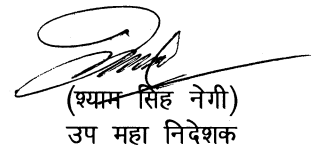 (श्याम सिंह नेगी)
उप महा निदेशक